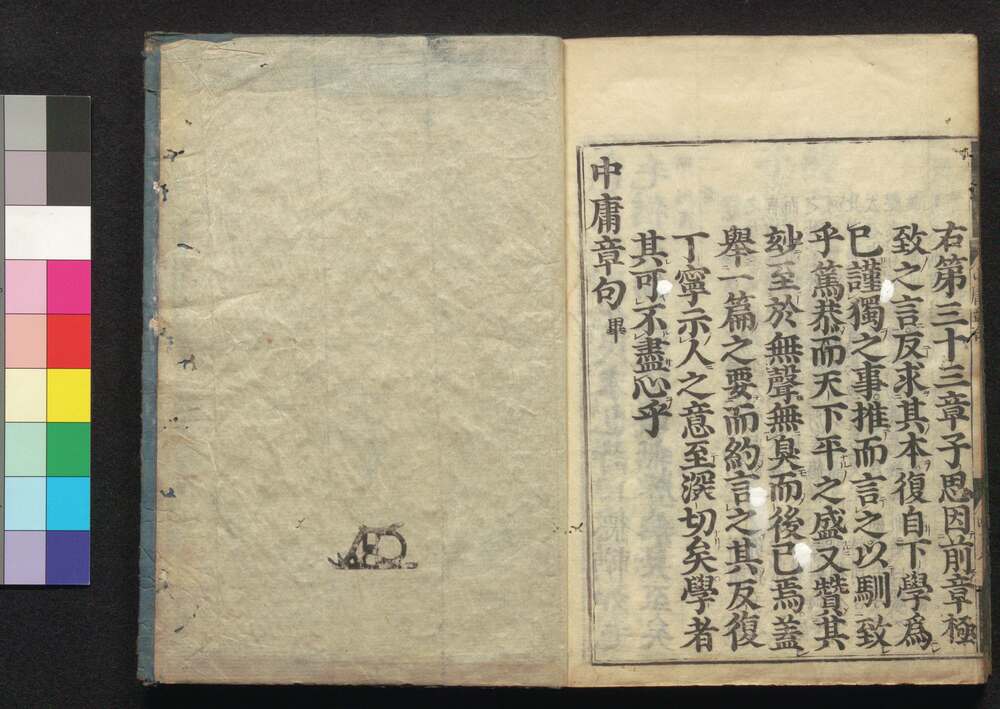 右第三十三章子思因前章極
致之言反求其本復自下學爲
已謹獨之事推而言之以馴致
乎篤恭而天下平之盛又贊其
玅至於無聲無臭而後已焉蓋
舉一篇之要而約言之其反復
丁寧示人之意至深切矣學者
其可不盡心乎
中庸章句畢